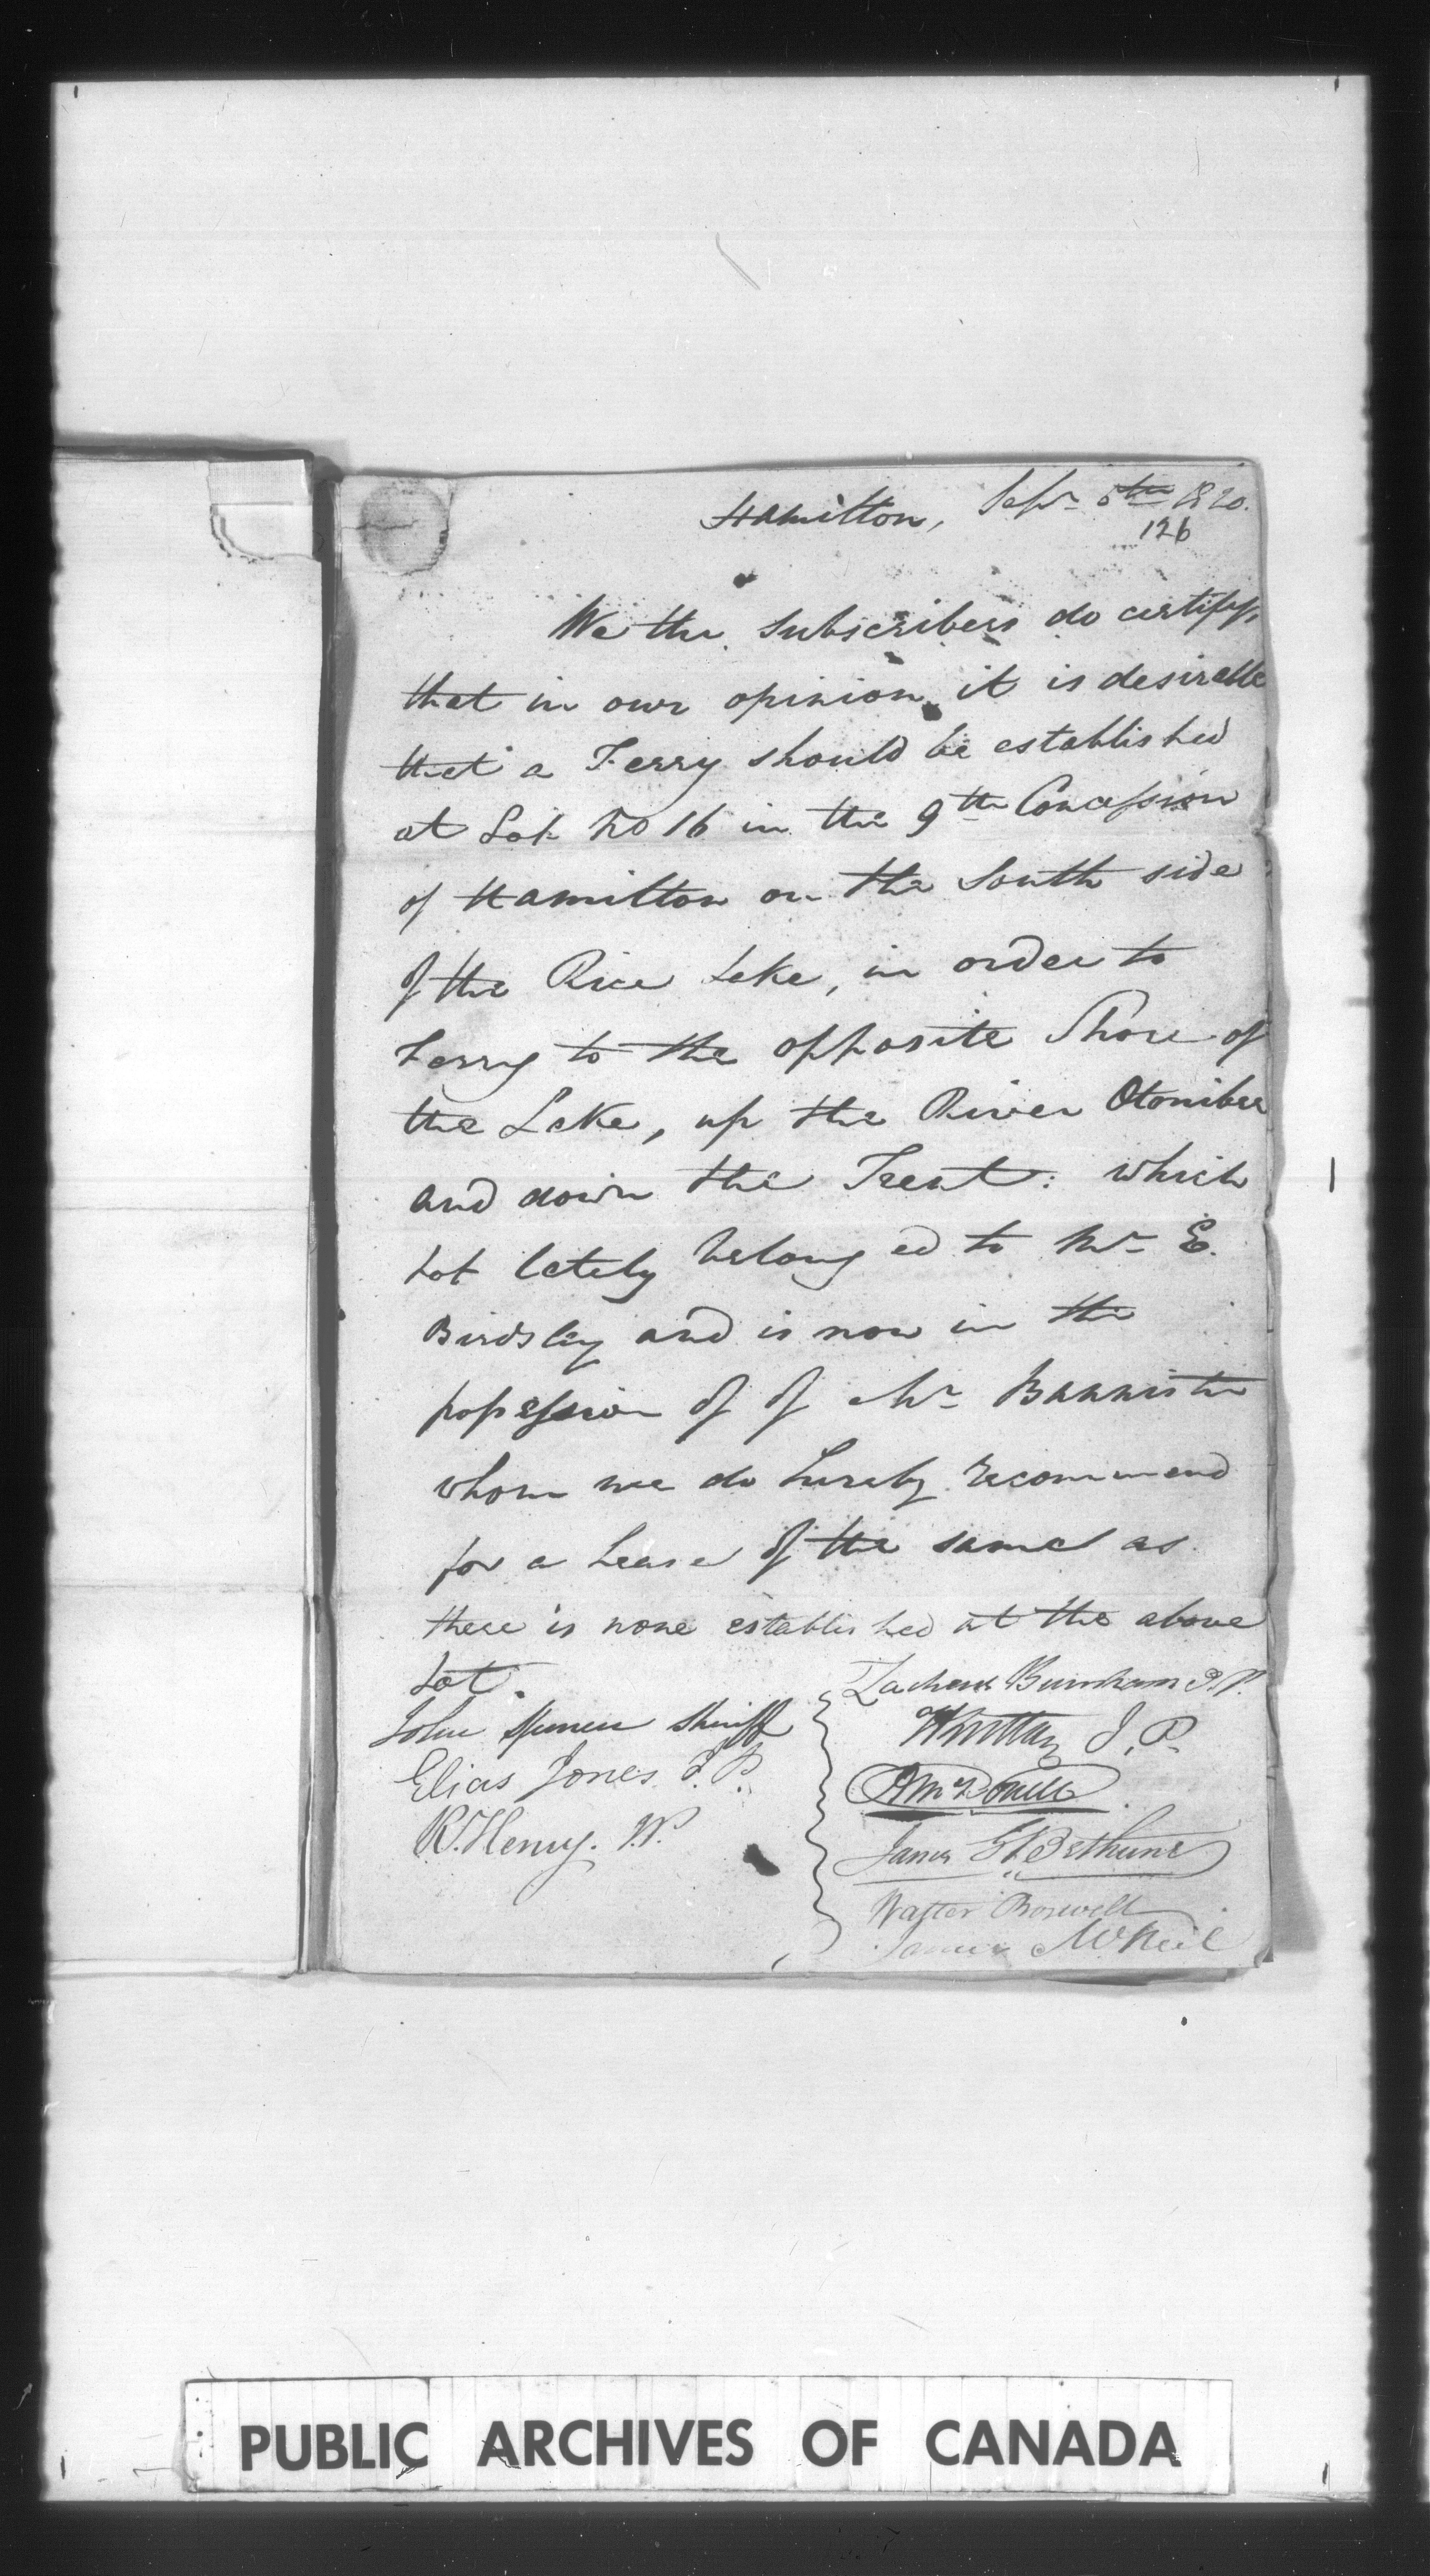 Hamilton, Septr 5th 1820.
126
We the Subscribers do certify,
that in our opinion it is desirable
that a Ferry should be established
at Lot No 16 in the 9th Concession
of Hamilton on the South side
of the Rice Lake, in order to
Ferry to the opposite Shore of
the Lake, up the River Otonibee
and down the Trent: which
Lot lately belonged to Mr E.
Birdsley and is now in the
possession of of Mr Bannister
whom we do hereby recommend
for a Lease of the same as
there is none established at the above
Lot.
John Spencer Sheriff
Elias Jones J.P.
R. Henry. J.P.
Zacheus Burnham J.P.
J.P.
James G. Bethune
Walter Boswell
James McNeil
PUBLIC ARCHIVES OF CANADA